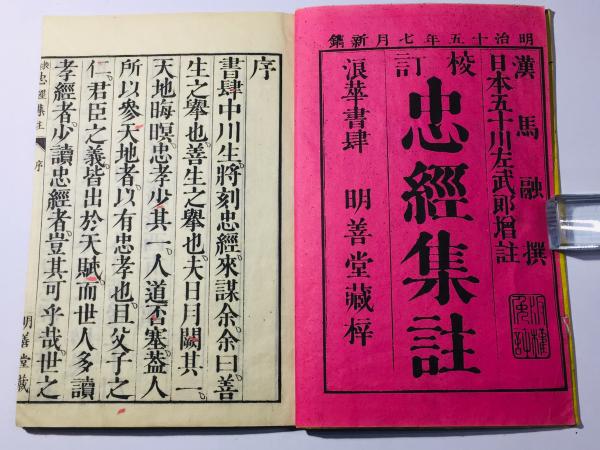 明治十五年七月新鐫
漢 馬融撰
日本五十川左武郎增註
校訂
忠經集註
浪華書肆 明善堂藏梓
序
書肆中川生將刻忠經來謀余余曰善
生之舉也善生之舉也夫日月闕其一
天地晦暝忠孝少其一人道否塞蓋人
所以參天地者以有忠孝也且父子之
仁君臣之義皆出於天賦而世人多讀
孝經者少讀忠經者豈其可乎哉世之
忠經集註 序
明善堂藏